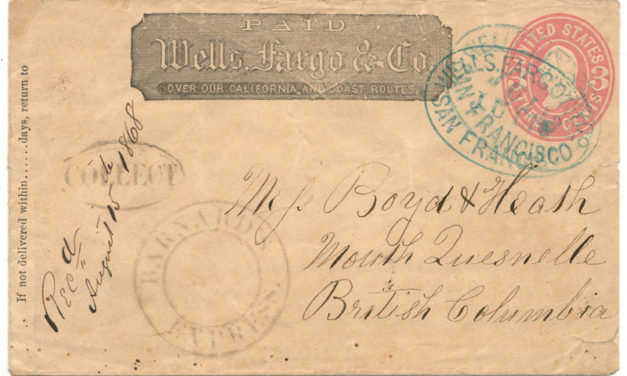 PAID
Wells, Fargo & Co.
OVER OUR CALIFORNIA AND COAST ROUTES.
UNITED STATES
THREE CENTS
WELLS, FARGO
SAN FRANCISCO
If not delivered within......days, return to
Rec'd
August 15 de 1868
COLLECT
BARNARD'S
EXPRESS.
Mess Boyd & Heath
Mouth Quesnelle
British Columbia